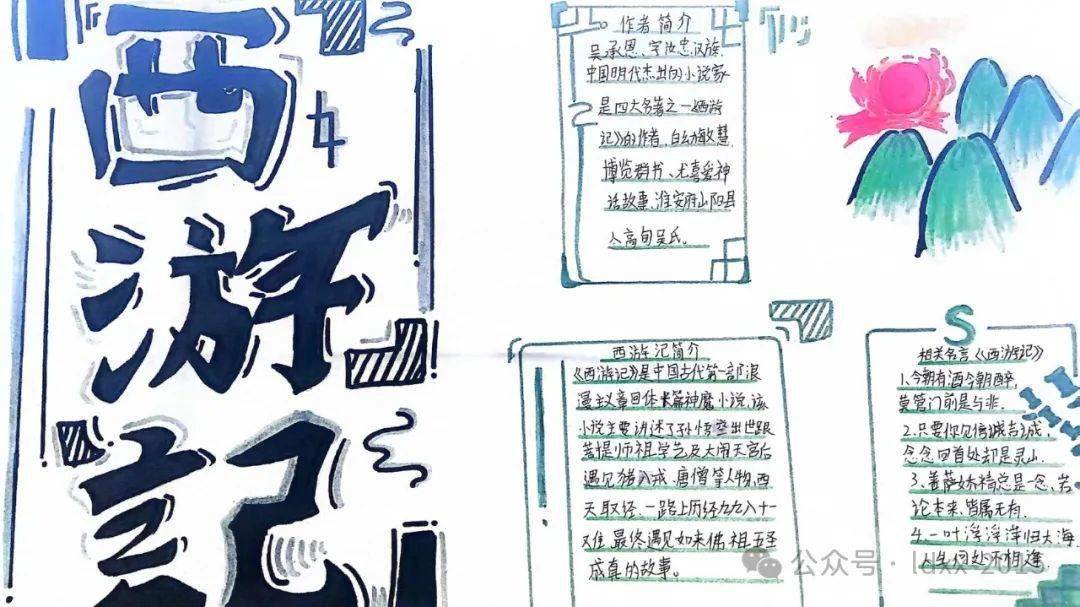 西
游
記
作者简介
吴承恩、字汝忠、汉族
中国明代杰出的小说家
是四大名著之一《西游
记》的作者、自幼敏慧
博览群书、尤喜爱神
话故事、淮安府山阳县
人高甸吴氏。
西游记简介
《西游记》是中国古代第一部浪
漫主义章回体长篇神魔小说、该
小说主要讲述了孙悟空出世跟
菩提师祖学艺及大闹天宫后
遇见猪八戒、唐僧等人物、西
天取经、一路上历经九九八十一
难、最终遇见如来佛祖、五圣
成真的故事。
S
相关名言《西游记》
1、今朝有酒今朝醉,
莫管门前是与非.
2.只要你见信诚志诚,
念念回首处却是灵山.
3、菩萨妖精总是一念、若
论本来、皆属无有.
4.一叶浮浮萍归大海,
人生何处不相逢
公众号·ldxx-2015